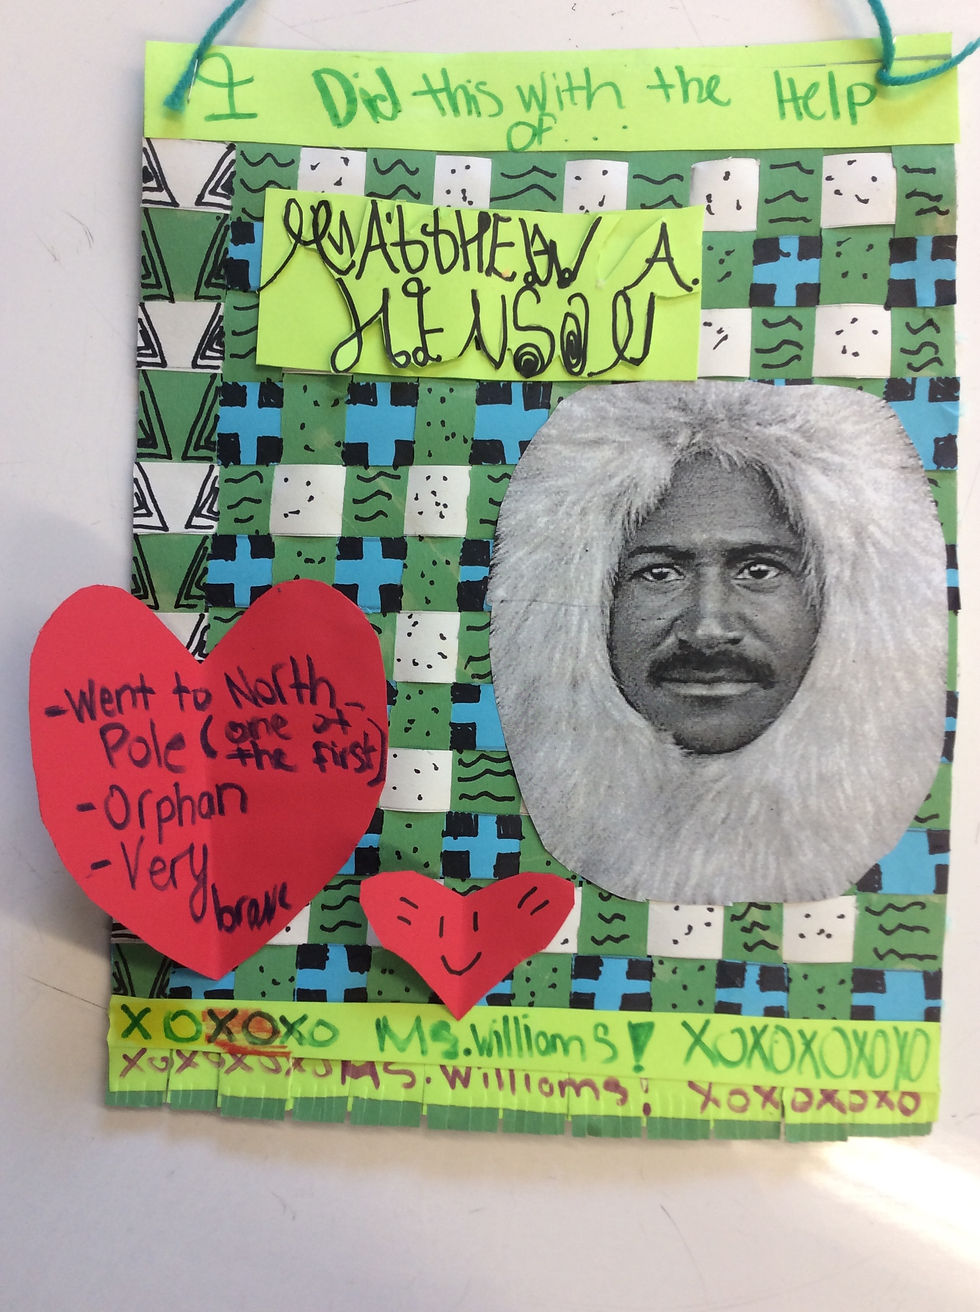 I Did this with the Help
of....
MAttHEW A.
HENSON
-Went to North
Pole (one of
the first)
-Orphan
-Very
brave
XOXOXO Ms. Williams! XOXOXOXOXO
XOXOXOXOXO Ms. Williams! XOXOXOXO